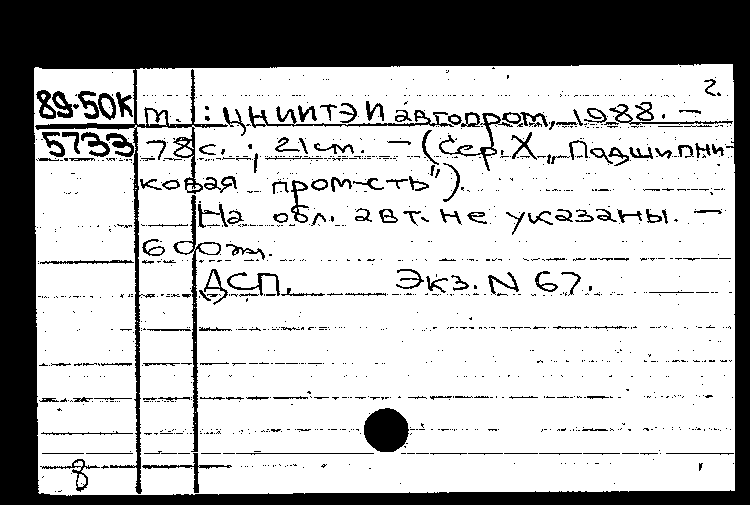 2.
89-50К м. : ЦНИИТЭИавтопром, 1988. –
5733 78 с. ; 21 см. – (Сер. X „Подшипни-
ковая пром-сть").
На обл. авт. не указаны. –
600 экз.
ДСП. Экз. N 67.
8